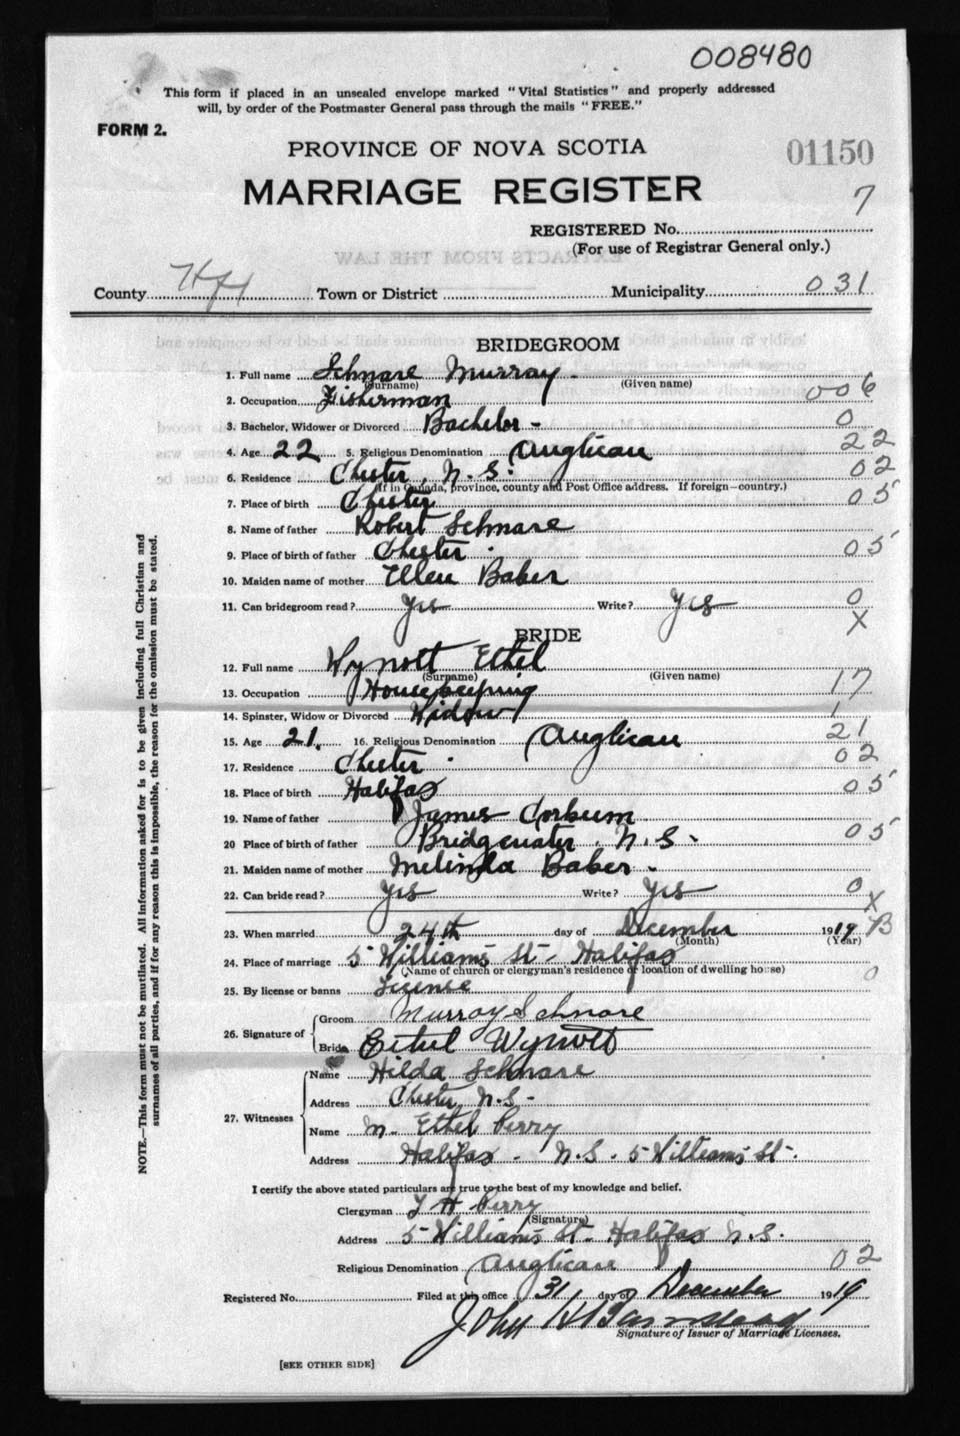 008480
This form if placed in an unsealed envelope marked "Vital Statistics" and properly addressed
will, by order of the Postmaster General pass through the mails "FREE."
FORM 2.
PROVINCE OF NOVA SCOTIA
01150
MARRIAGE REGISTER
7
REGISTERED No.
(For use of Registrar General only.)
EXTRACTS FROM THE LAW
County Hfx Town or District Municipality 031
BRIDEGROOM
1. Full name Schnare Murray
(Surname) (Given name)
2. Occupation Fisherman 006
3. Bachelor, Widower or Divorced Bachelor - 0
4. Age 22 5. Religious Denomination Anglican 22
6. Residence Chester, N.S. 02
(If in Canada, province, county and Post Office address. If foreign—country.)
7. Place of birth Chester 05
8. Name of father Robert Schnare
9. Place of birth of father Chester 05
10. Maiden name of mother Ellen Baber
11. Can bridegroom read? Yes Write? Yes 0
X
BRIDE
12. Full name Wynott Ethel
(Surname) (Given name)
13. Occupation Housekeeping 17
14. Spinster, Widow or Divorced Widow 1
15. Age 21. 16. Religious Denomination Anglican 21
17. Residence Chester 02
18. Place of birth Halifax 05
19. Name of father James Corbum
20 Place of birth of father Bridgewater, N.S. 05
21. Maiden name of mother Melinda Baber
22. Can bride read? Yes Write? Yes 0
X
23. When married 24th day of December 1919 B
(Month) (Year)
24. Place of marriage 5 Williams St - Halifax
(Name of church or clergyman's residence or location of dwelling house) 0
25. By license or banns License
26. Signature of Groom Murray Schnare
Bride Ethel Wynott
27. Witnesses Name Hilda Schnare
Address Chester N.S.
Name M. Ethel Perry
Address Halifax - N.S. 5 Williams St.
I certify the above stated particulars are true to the best of my knowledge and belief.
Clergyman H Perry
(Signature)
Address 5 Williams St. Halifax N.S.
Religious Denomination Anglican 02
Registered No. Filed at this office 31 day of December 1919
John
Signature of Issuer of Marriage Licenses.
[SEE OTHER SIDE]
NOTE.—This form must not be mutilated. All information asked for is to be given including full Christian and
surnames of all parties, and if for any reason this is impossible, the reason for the omission must be stated.